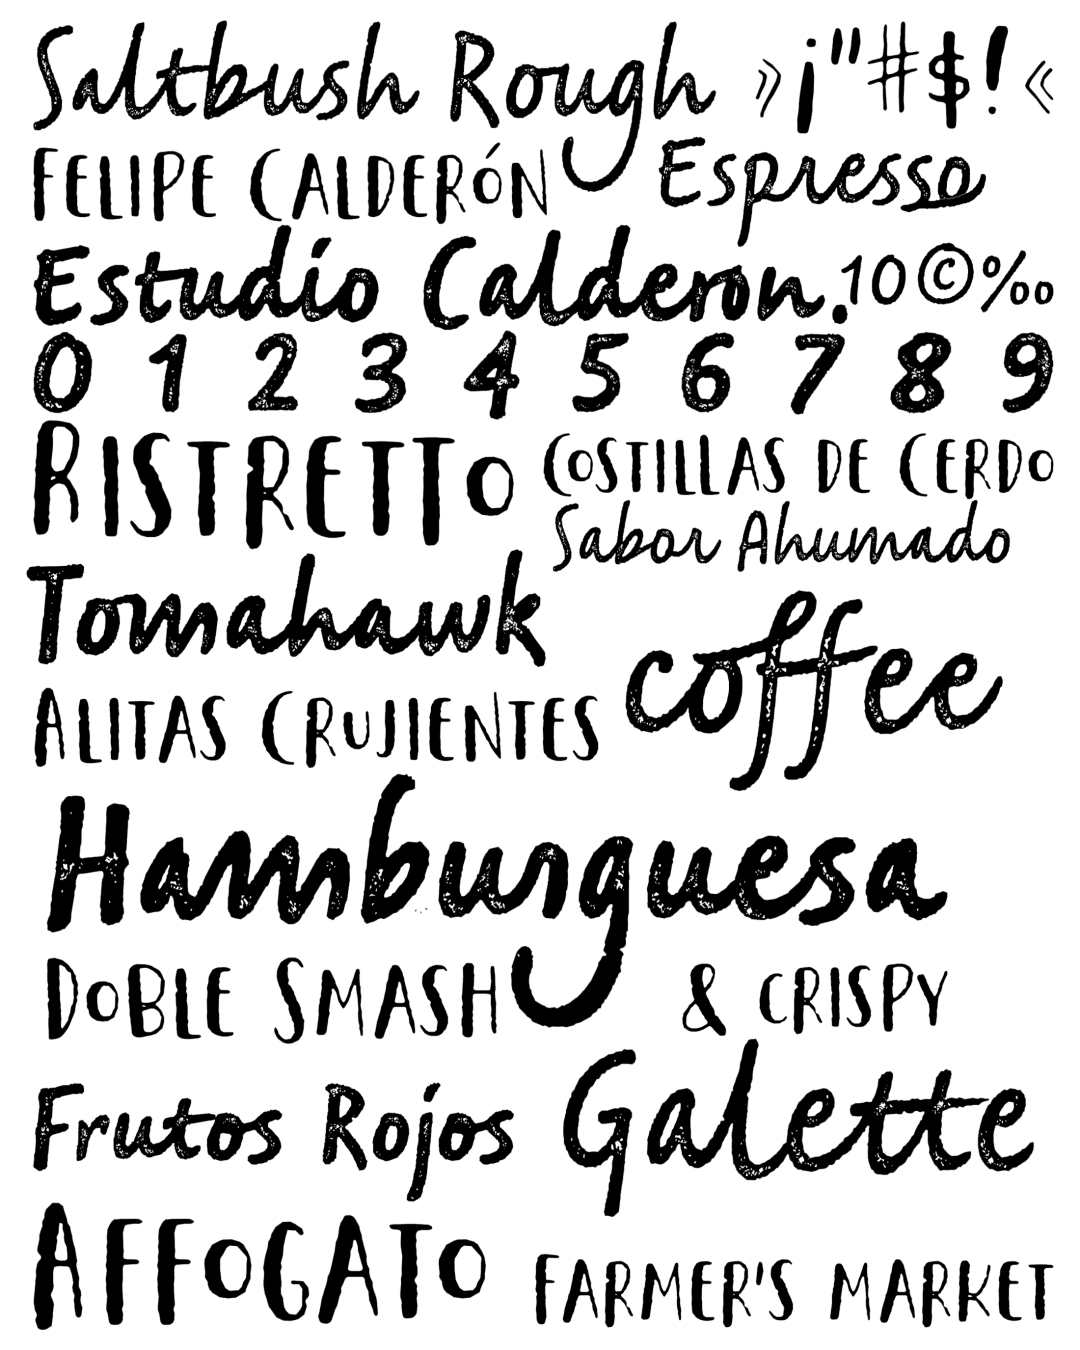 Saltbush Rough »¡"#$!«
FELIPE CALDERÓN Espresso
Estudio Calderón. 10©‰
0 1 2 3 4 5 6 7 8 9
RISTRETTO COSTILLAS DE CERDO
Sabor Ahumado
Tomahawk
coffee
ALITAS CRUJIENTES
Hamburguesa
DOBLE SMASH & CRISPY
Frutos Rojos Galette
AFFOGATO FARMER'S MARKET